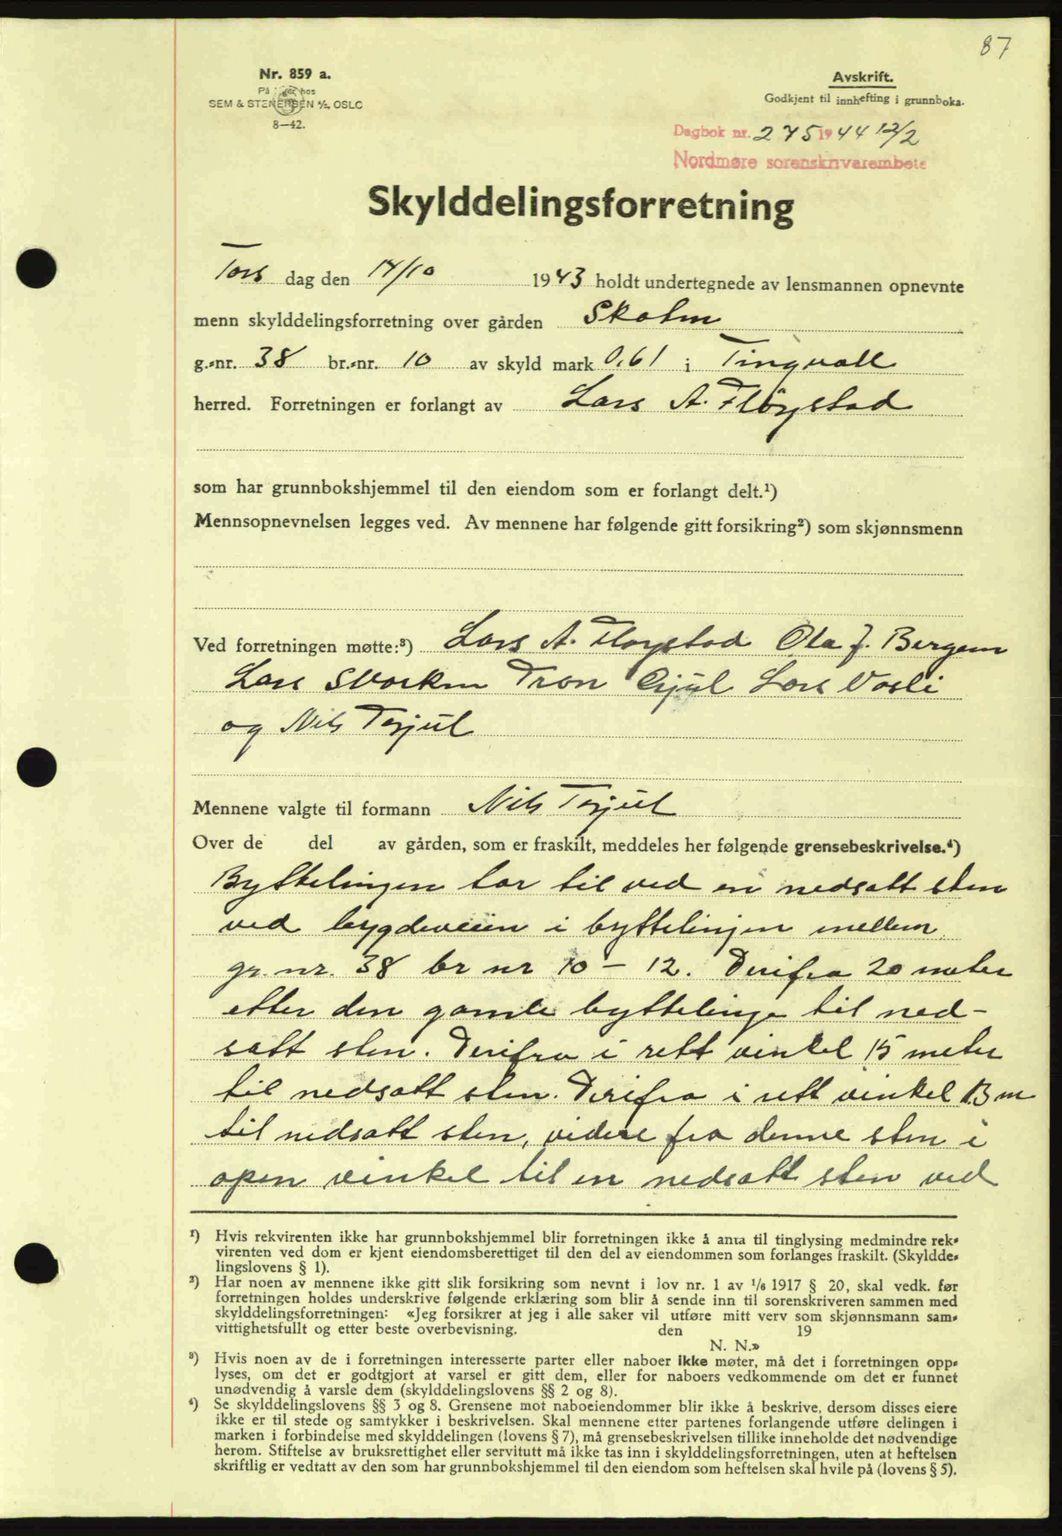 87
Nr. 859 a.
På lager hos
SEM & STENERSEN A/S, OSLO
8—42.
Avskrift.
Godkjent til innhefting i grunnboka.
Dagbok nr. 275 1944 12/2
Nordmøre sorenskriverembete
Skylddelingsforretning
Tors dag den 14/10 1943 holdt undertegnede av lensmannen opnevnte
menn skylddelingsforretning over gården Skolm
g.-nr. 38 br.-nr. 10 av skyld mark 0,61 i Tingvoll
herred. Forretningen er forlangt av Lars A. Fløystad
som har grunnbokshjemmel til den eiendom som er forlangt delt.¹)
Mennsopnevnelsen legges ved. Av mennene har følgende gitt forsikring²) som skjønnsmenn
Ved forretningen møtte:³) Lars A. Fløystad Ola J. Bergem
Lars Tron Gjul Lars
og Nils Torjul
Mennene valgte til formann Nils Torjul
Over de del av gården, som er fraskilt, meddeles her følgende grensebeskrivelse.⁴)
Byttelingen tar til ved en nedsatt sten
ved bygdeveien i byttelinjen mellem
gr. nr. 38 br nr 10 – 12. Derifra 20 meter
etter den gamle byttelinje til ned-
satt sten. Derifra i rett vinkel 15 meter
til nedsatt sten. Derifra i rett vinkel 13 m
til nedsatt sten, videre fra denne sten i
open vinkel til en nedsatt sten ved
¹) Hvis rekvirenten ikke har grunnbokshjemmel blir forretningen ikke å anta til tinglysing medmindre rek-
virenten ved dom er kjent eiendomsberettiget til den del av eiendommen som forlanges fraskilt. (Skyldde-
lingslovens § 1).
²) Har noen av mennene ikke gitt slik forsikring som nevnt i lov nr. 1 av 1/6 1917 § 20, skal vedk. før
forretningen holdes underskrive følgende erklæring som blir å sende inn til sorenskriveren sammen med
skylddelingsforretningen: «Jeg forsikrer at jeg i alle saker vil utføre mitt verv som skjønnsmann sam-
vittighetsfullt og etter beste overbevisning. den 19
N. N.»
³) Hvis noen av de i forretningen interesserte parter eller naboer ikke møter, må det i forretningen opp-
lyses, om det er godtgjort at varsel er gitt dem, eller for naboers vedkommende om det er funnet
unødvendig å varsle dem (skylddelingslovens §§ 2 og 8).
⁴) Se skylddelingslovens §§ 3 og 8. Grensene mot naboeiendommer blir ikke å beskrive, dersom disses eiere
ikke er til stede og samtykker i beskrivelsen. Skal mennene etter partenes forlangende utføre delingen i
marken i forbindelse med skylddelingen (lovens § 7), må grensebeskrivelsen tillike inneholde det nødvendige
herom. Stiftelse av bruksrettighet eller servitutt må ikke tas inn i skylddelingsforretningen, uten at heftelsen
skriftlig er vedtatt av den som har grunnbokshjemmel til den eiendom som heftelsen skal hvile på (lovens § 5).